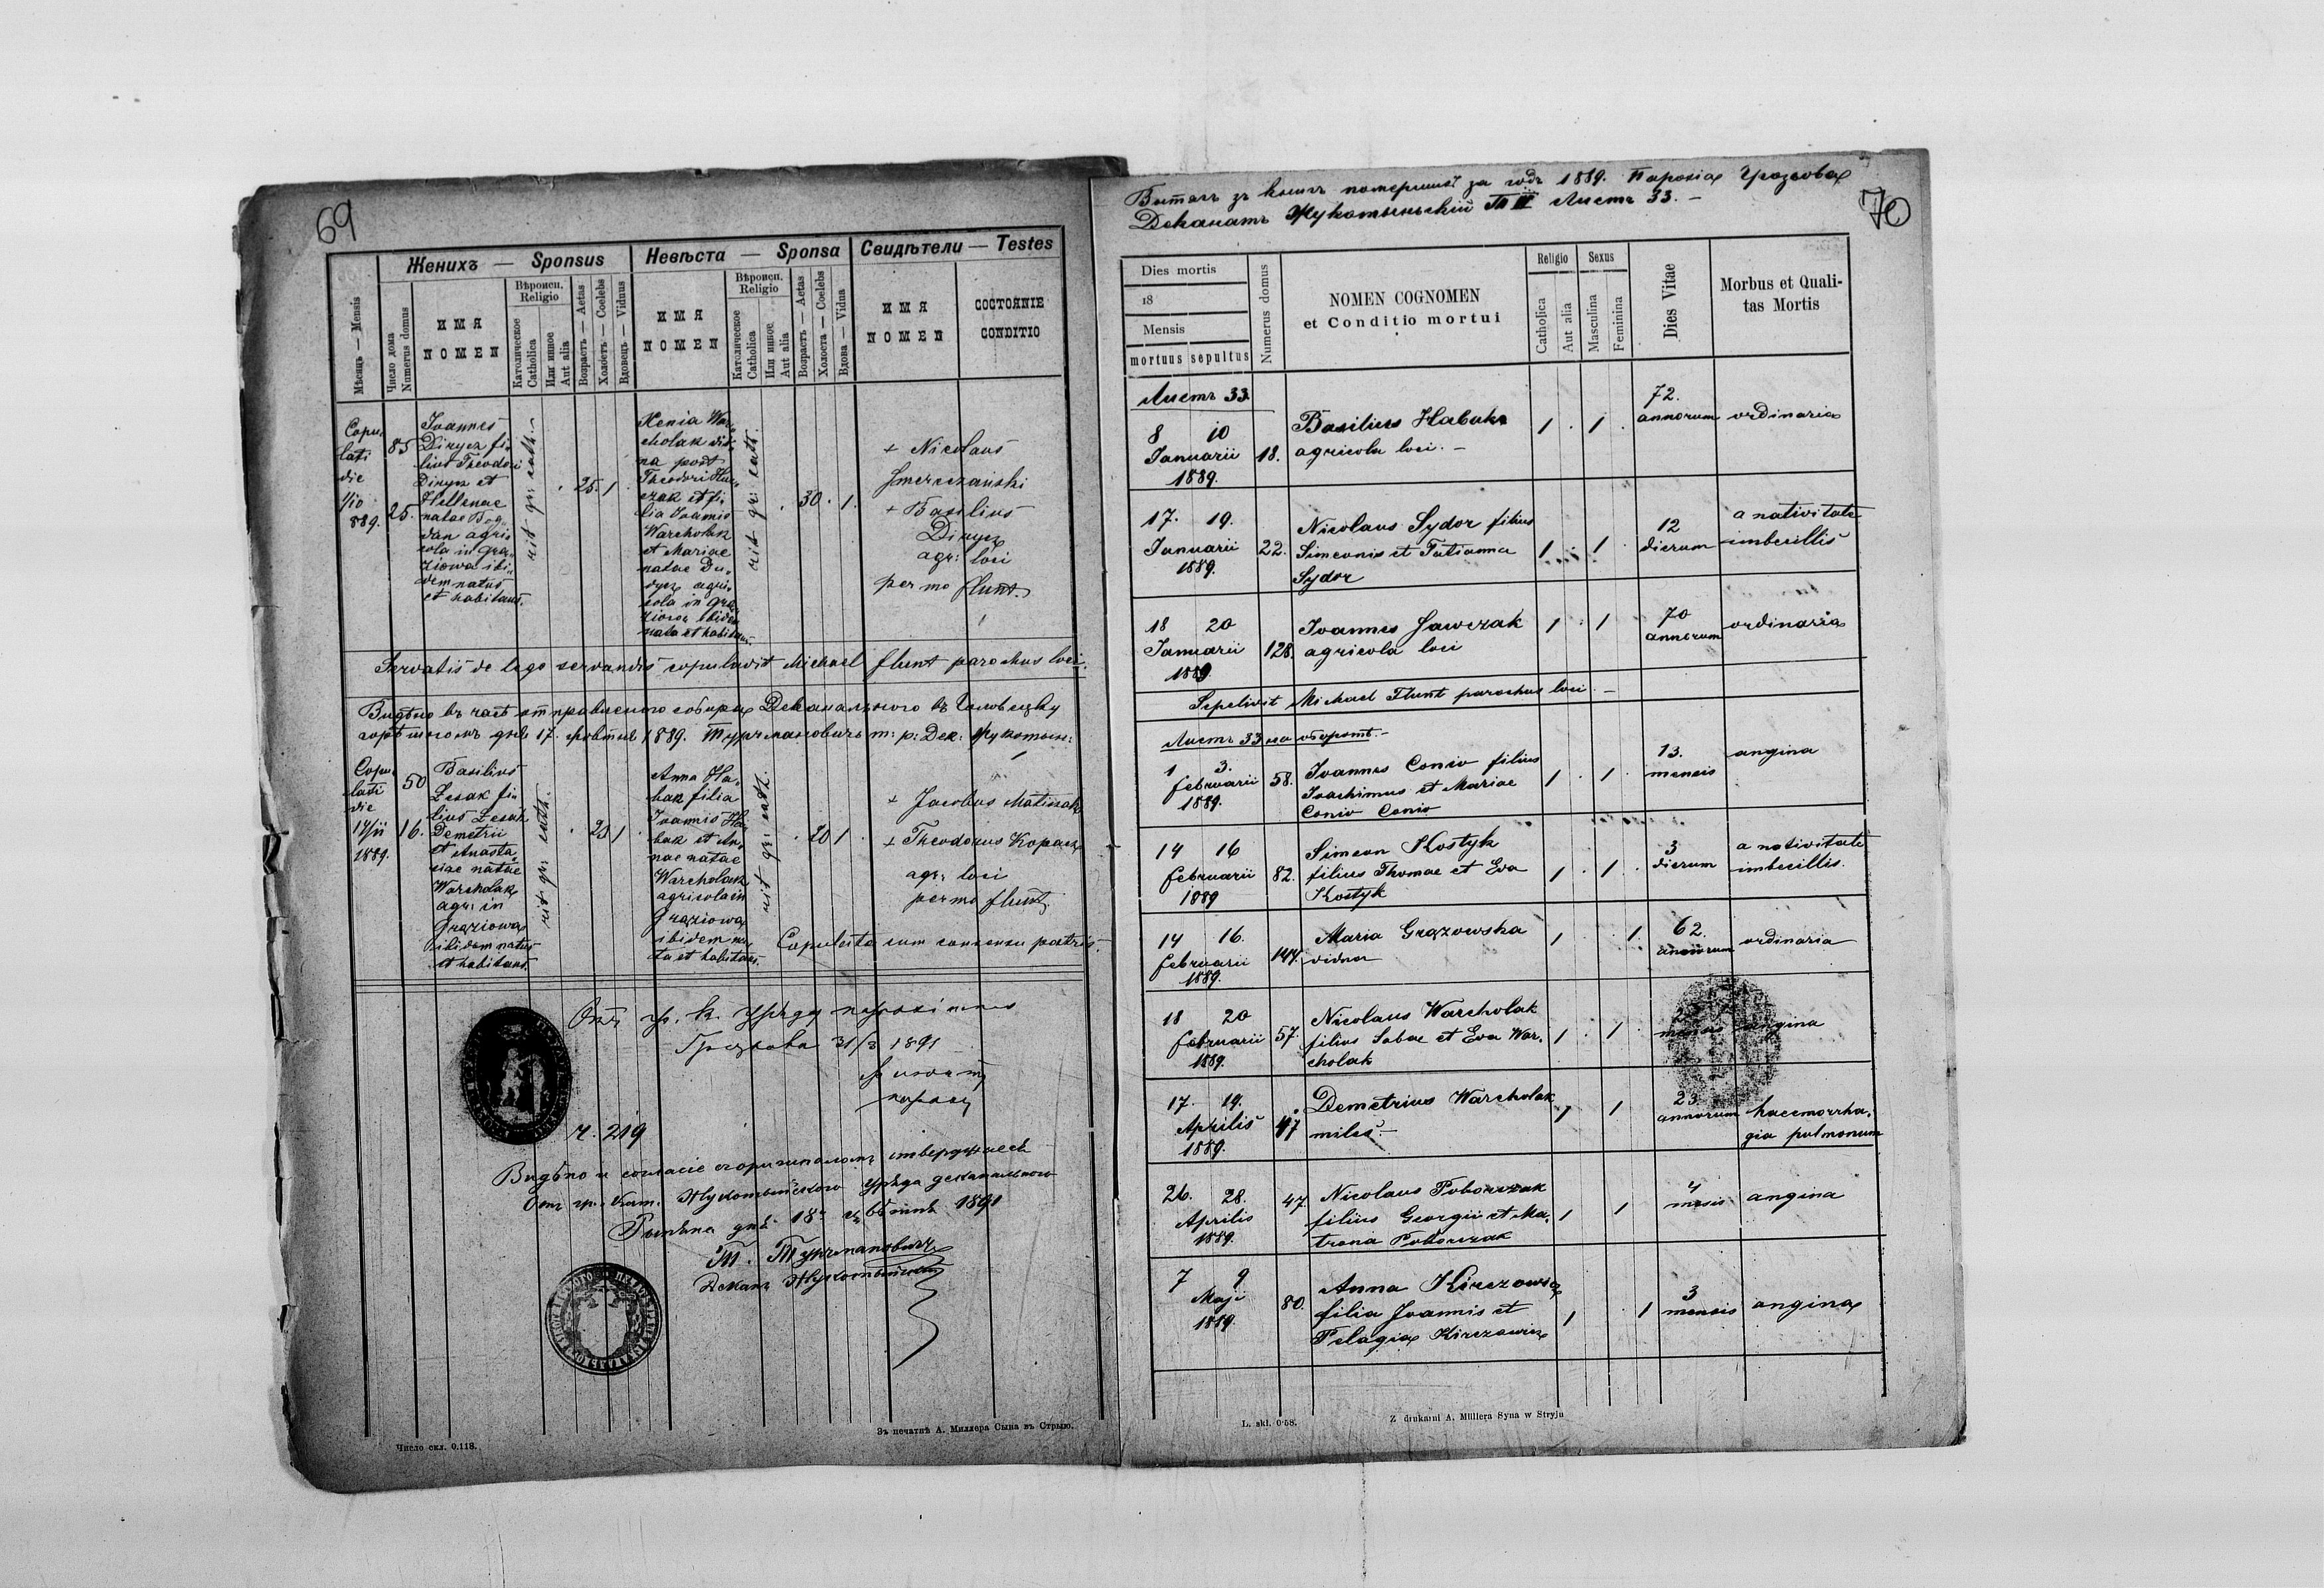 69
Женихъ — Sponsus
Невѣста — Sponsa
Свидѣтели — Testes
Мѣсяць — Mensis
Число дома
Numerus domus
ИМЯ
NOMEN
Вѣроисп.
Religio
Католическое
Catholica
Или иное
Aut alia
Возрасть — Aetas
Холостъ — Coelebs
Вдовець — Viduus
ИМЯ
NOMEN
Вѣроисп.
Religio
Католическое
Catholica
Или иное
Aut alia
Возрасть — Aetas
Холоста — Coelebs
Вдова — Vidua
ИМЯ
NOMEN
СОСТОЯНІЕ
CONDITIO
Copu-
lati
die
1/10
889.
85
25.
Joannes
Dinycz fi-
lius Theodori
Dinycz et
Hellenae
natae Bog-
dan agri
cola in Grą-
ziowa ibi-
dem natus
et habitans.
rit. gr: cath.
25. 1
Xenia War-
cholak vid-
ua post
Theodori
czak et fi-
lia Joannis
Warcholak
et Mariae
natae Du-
dycz agri-
cola in Grą-
ziowa ibidem
nata et habitans
rit gr: cath.
30. 1.
+ Nicolaus
Smereczanski
+ Basilius
Dinycz
agr: loci
per me Flunt.
Servatis de lege servandis copulavit Michael Flunt parochus loci.
1889.
Copu-
lati
die
14/11
1889.
50
16.
Basilius
Lesak fi-
lius Lesak
Demetrii
et Anasta-
siae natae
Warcholak
agr: in
Grąziowa
ibidem natus
et habitans.
rit. gr: cath.
23 1
Anna Ha-
bak filia
Joannis Ha-
bak et An-
nae natae
Warcholak
agricola in
Grąziowa
ibidem na-
ta et habitans.
rit gr: cath.
20 1
+ Jacobus Matiszak
+ Theodorus Kopacz
agr: loci
per me Flunt.
Copulata cum consensu patris.
Грозьова 31/3 1891
ч. 219
Видѣно и согласіе съ оригиналомъ стверджаесь
Отъ гр. кат. Жукотынского уряда деканального
1891
Т. Турчмановичъ
Деканъ Жукотынскій
Число скл. 0.118.
Зъ печатнѣ А. Миллера Сына въ Стрыю.
Вытягъ зъ книгъ помершихъ за годъ 1889. Парохія Грозьова
Деканатъ Жукотыньскій Т III Листъ 33. —
70
Dies mortis
18
Mensis
mortuus sepultus
Numerus domus
NOMEN COGNOMEN
et Conditio mortui
Religio
Catholica
Aut alia
Sexus
Masculina
Feminina
Dies Vitae
Morbus et Quali-
tas Mortis
Листъ 33.
8 10
Januarii
1889.
18.
Basilius Habak
agricola loci. —
1 . 1 .
72.
annorum
ordinaria
17. 19.
Januarii
1889.
22.
Nicolaus Sydor filius
Simeonis et Tatianna
Sydor
1 . 1 .
12
dierum
a nativitate
imbecillis
18 20
Januarii
1889.
128.
Joannes Sawczak
agricola loci
1 . 1
70
annorum
ordinaria
Sepelivit Michael Flunt parochus loci. —
Листъ 33 на оборотѣ. —
1 3.
Februarii
1889.
58.
Joannes Coniv filius
Joachimus et Mariae
Coniv Coniv
1 . 1 .
13.
mensis
angina
14 16
Februarii
1889
82.
Simeon Kostyk
filius Thomae et Eva
Kostyk
1 . 1 .
3
dierum
a nativitate
imbecillis.
14 16.
Februarii
1889.
144.
Maria Grązowska
vidua
1 1.
62.
annorum
ordinaria
18 20
Februarii
1889.
57.
Nicolaus Warcholak
filius Sabae et Eva War-
cholak
1 . 1 .
angina
17. 19.
Aprilis
1889.
47
Demetrius Warcholak
miles. —
1 1
23.
annorum
haemorrha-
gia pulmonum
26. 28.
Aprilis
1889.
47.
Nicolaus Poborczak
filius Georgii et Ma-
trona Poborczak
1 1
4
mesis
angina
7 9
Maji
1889.
80.
Anna Kirczowa
filia Joannis et
Pelagia Kirczowicz
1 1
3
mensis
angina
L. skł. 0·58.
Z drukarni A. Müllera Syna w Stryju